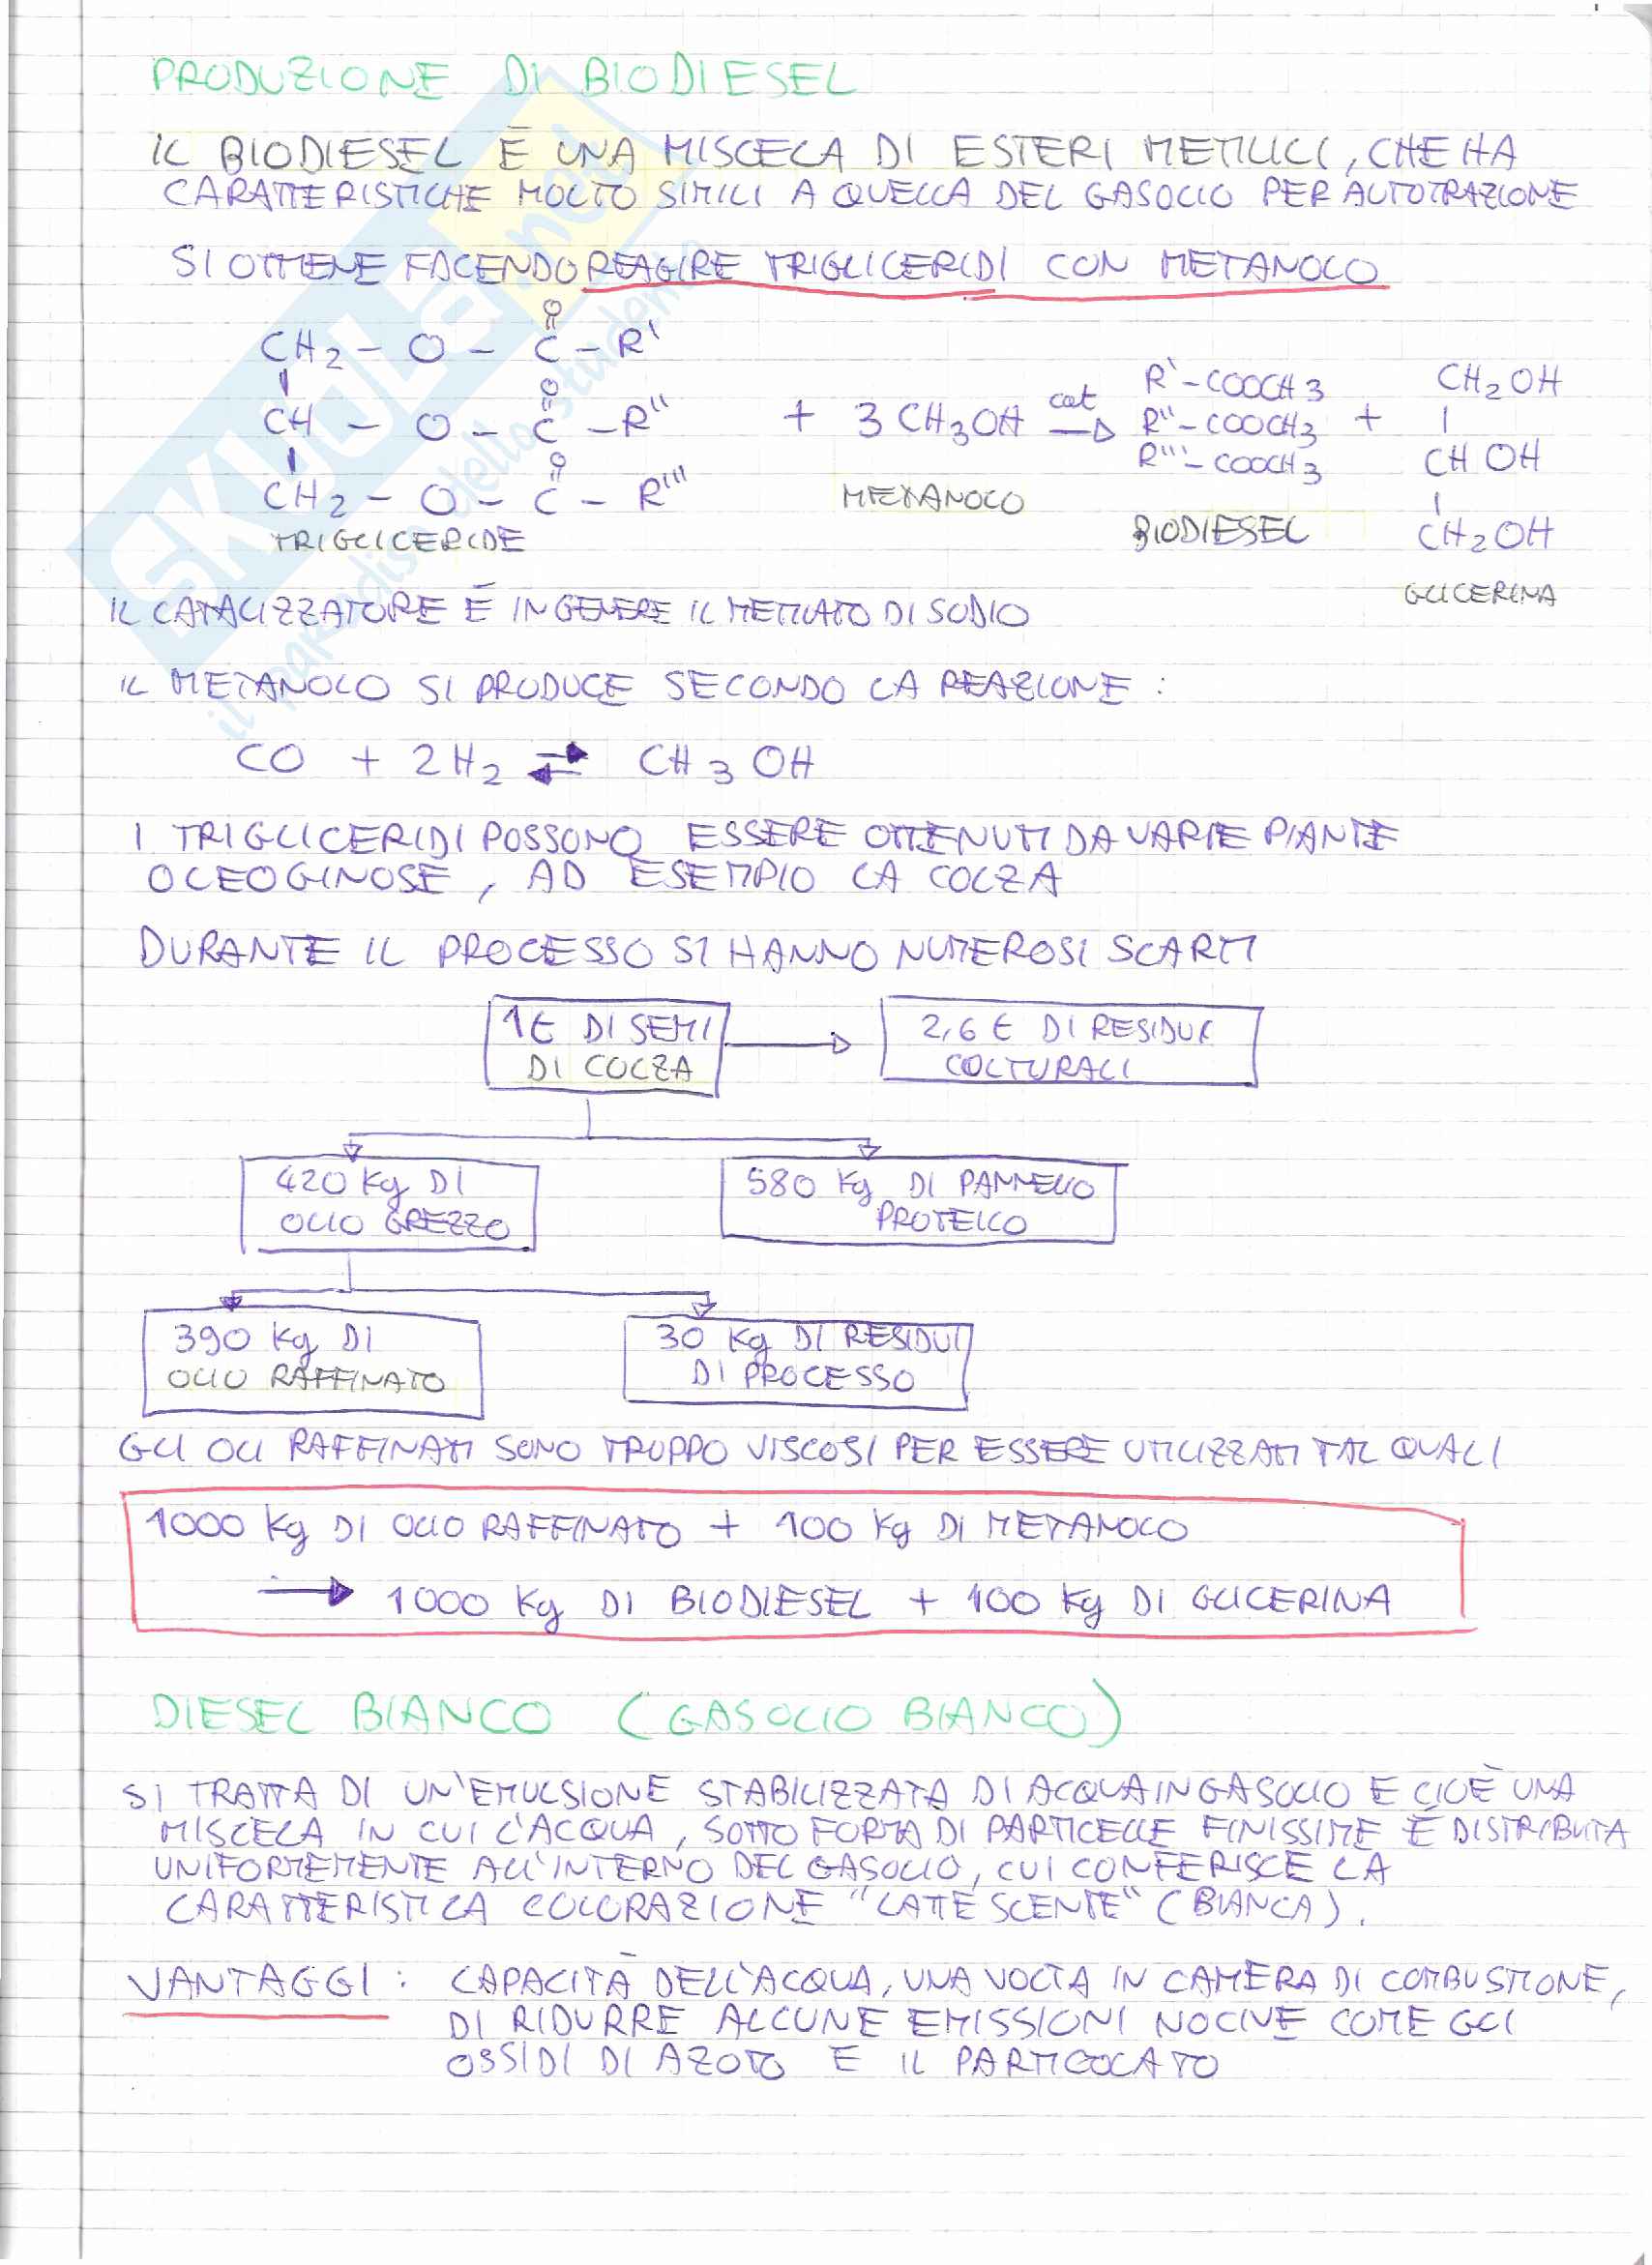 PRODUZIONE DI BIODIESEL
IL BIODIESEL È UNA MISCELA DI ESTERI METILICI, CHE HA
CARATTERISTICHE MOLTO SIMILI A QUELLA DEL GASOLIO PER AUTOTRAZIONE
SI OTTIENE FACENDO REAGIRE TRIGLICERIDI CON METANOLO
O
CH2 - O - C - R'
O
CH - O - C - R''
O
CH2 - O - C - R'''
TRIGLICERIDE
+ 3 CH3OH cat →
METANOLO
R' - COOCH3
R'' - COOCH3
R''' - COOCH3
BIODIESEL
+
CH2OH
CHOH
CH2OH
GLICERINA
IL CATALIZZATORE È IN GENERE IL METILATO DI SODIO
IL METANOLO SI PRODUCE SECONDO LA REAZIONE :
CO + 2H2 ⇄ CH3OH
I TRIGLICERIDI POSSONO ESSERE OTTENUTI DA VARIE PIANTE
OLEOGINOSE, AD ESEMPIO LA COLZA
DURANTE IL PROCESSO SI HANNO NUMEROSI SCARTI
1t DI SEMI
DI COLZA
2,6 t DI RESIDUI
COLTURALI
420 Kg DI
OLIO GREZZO
580 Kg DI PANNELLO
PROTEICO
390 Kg DI
OLIO RAFFINATO
30 Kg DI RESIDUI
DI PROCESSO
GLI OLI RAFFINATI SONO TRUPPO VISCOSI PER ESSERE UTILIZZATI TAL QUALI
1000 Kg DI OLIO RAFFINATO + 100 Kg DI METANOLO
→ 1000 Kg DI BIODIESEL + 100 Kg DI GLICERINA
DIESEL BIANCO (GASOLIO BIANCO)
SI TRATTA DI UN'EMULSIONE STABILIZZATA DI ACQUA IN GASOLIO E CIOÈ UNA
MISCELA IN CUI L'ACQUA, SOTTO FORMA DI PARTICELLE FINISSIME È DISTRIBUITA
UNIFORMEMENTE ALL'INTERNO DEL GASOLIO, CUI CONFERISCE LA
CARATTERISTICA COLORAZIONE "LATTESCENTE" (BIANCA).
VANTAGGI : CAPACITÀ DELL'ACQUA, UNA VOLTA IN CAMERA DI COMBUSTIONE,
DI RIDURRE ALCUNE EMISSIONI NOCIVE COME GLI
OSSIDI DI AZOTO E IL PARTICOLATO
SKUOLA.net
il paradiso dello studente